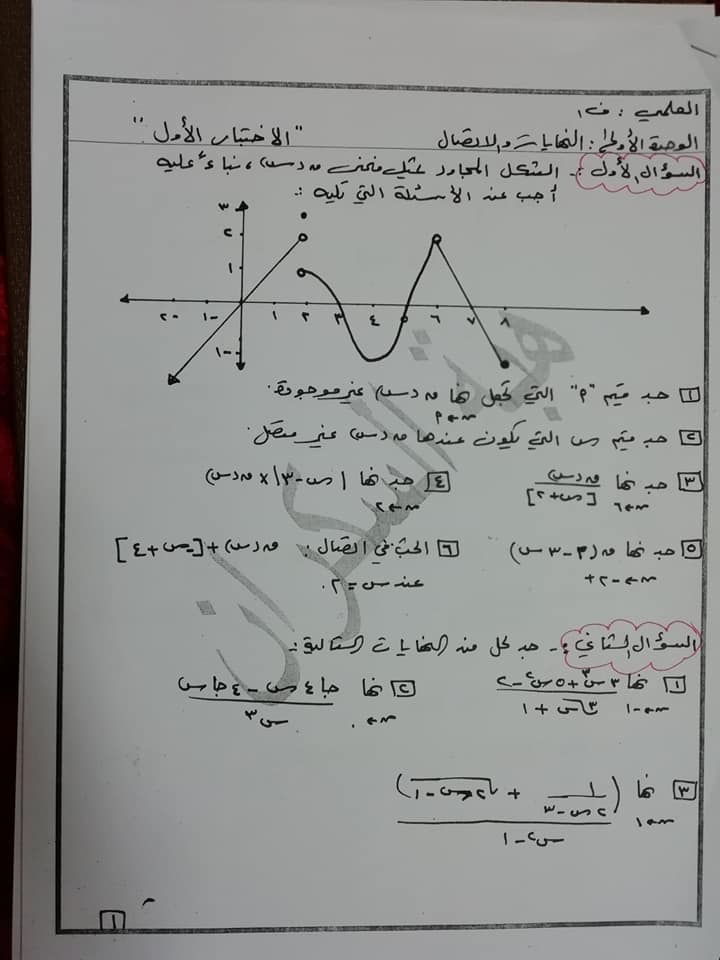 العلمي : ف١
الوحدة الأولى : النهايات والاتصال "الاختبار الأول"
السؤال الأول :- الشكل المجاور يمثل منحنى ق(س)، بناءً عليه
أجب عن الأسئلة التي تليه :-
٣
٢
١
٢- ١- ١ ٢ ٣ ٤ ٥ ٦ ٧ ٨
١-
١ جد قيم "٢" التي تجعل نها ق(س) غير موجودة.
س←٢
٢ جد قيم س التي يكون عندها ق(س) غير متصل.
٣ جد نها ق(س) / [س+٢] س←٦
٤ جد نها |س-٣| × ق(س) س←٢
٥ جد نها ق(٢-٣س) س←-٢+
٦ ابحث في اتصال : ق(س) + [-س+٤]
عند س = ٢.
السؤال الثاني :- جد كل من النهايات التالية :-
١ نها ٣س٣ + ٥س٢ - ٢ / ∛س + ١ س←-١
٢ نها جا٤س - ٤جاس / س٣ س←٠
٣ نها (١ / ٢س-٣ + √٢س-١) / س٢-١ س←١
هبة السكران
١